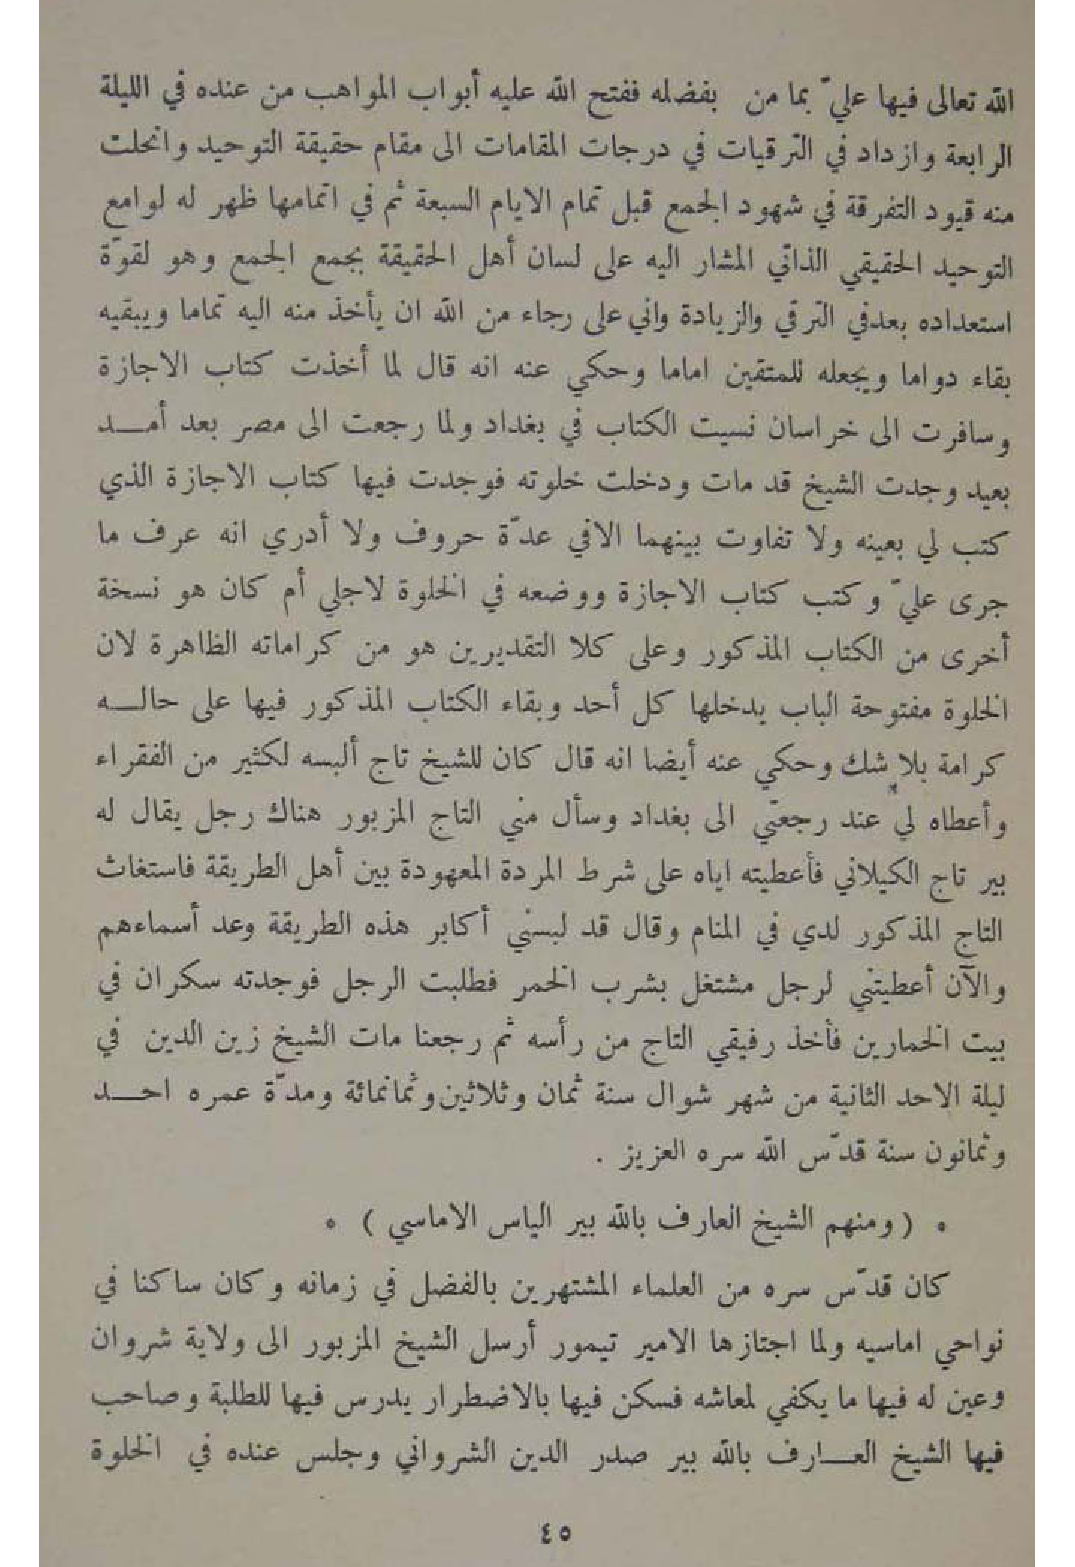 الله تعالى فيها عليّ بما من بفضله ففتح الله عليه أبواب المواهب من عنده في الليلة
الرابعة وازداد في الترقيات في درجات المقامات الى مقام حقيقة التوحيد وانحلت
منه قيود التفرقة في شهود الجمع قبل تمام الايام السبعة ثم في اتمامها ظهر له لوامع
التوحيد الحقيقي الذاتي المشار اليه على لسان أهل الحقيقة بجمع الجمع وهو لقوّة
استعداده بعدفي الترقي والزيادة واني على رجاء من الله ان يأخذ منه اليه تماما ويبقيه
بقاء دواما ويجعله للمتقين اماما وحكي عنه انه قال لما أخذت كتاب الاجازة
وسافرت الى خراسان نسيت الكتاب في بغداد ولما رجعت الى مصر بعد أمد
بعيد وجدت الشيخ قد مات ودخلت خلوته فوجدت فيها كتاب الاجازة الذي
كتب لي بعينه ولا تفاوت بينهما الافي عدّة حروف ولا أدري انه عرف ما
جرى عليّ وكتب كتاب الاجازة ووضعه في الخلوة لاجلي أم كان هو نسخة
أخرى من الكتاب المذكور وعلى كلا التقديرين هو من كراماته الظاهرة لان
الخلوة مفتوحة الباب يدخلها كل أحد وبقاء الكتاب المذكور فيها على حاله
كرامة بلا شك وحكي عنه أيضا انه قال كان للشيخ تاج ألبسه لكثير من الفقراء
وأعطاه لي عند رجعتي الى بغداد وسأل مني التاج المزبور هناك رجل يقال له
بير تاج الكيلاني فأعطيته اياه على شرط المردة المعهودة بين أهل الطريقة فاستغاث
التاج المذكور لدي في المنام وقال قد لبسني أكابر هذه الطريقة وعد أسماءهم
والآن أعطيتني لرجل مشتغل بشرب الخمر فطلبت الرجل فوجدته سكران في
بيت الخمارين فأخذ رفيقي التاج من رأسه ثم رجعنا مات الشيخ زين الدين في
ليلة الاحد الثانية من شهر شوال سنة ثمان وثلاثين وثمانمائة ومدّة عمره احد
وثمانون سنة قدّس الله سره العزيز .
* ( ومنهم الشيخ العارف بالله بير الياس الاماسي ) *
كان قدّس سره من العلماء المشتهرين بالفضل في زمانه وكان ساكنا في
نواحي اماسيه ولما اجتازها الامير تيمور أرسل الشيخ المزبور الى ولاية شروان
وعين له فيها ما يكفي لمعاشه فسكن فيها بالاضطرار يدرس فيها للطلبة وصاحب
فيها الشيخ العارف بالله بير صدر الدين الشرواني وجلس عنده في الخلوة
٤٥